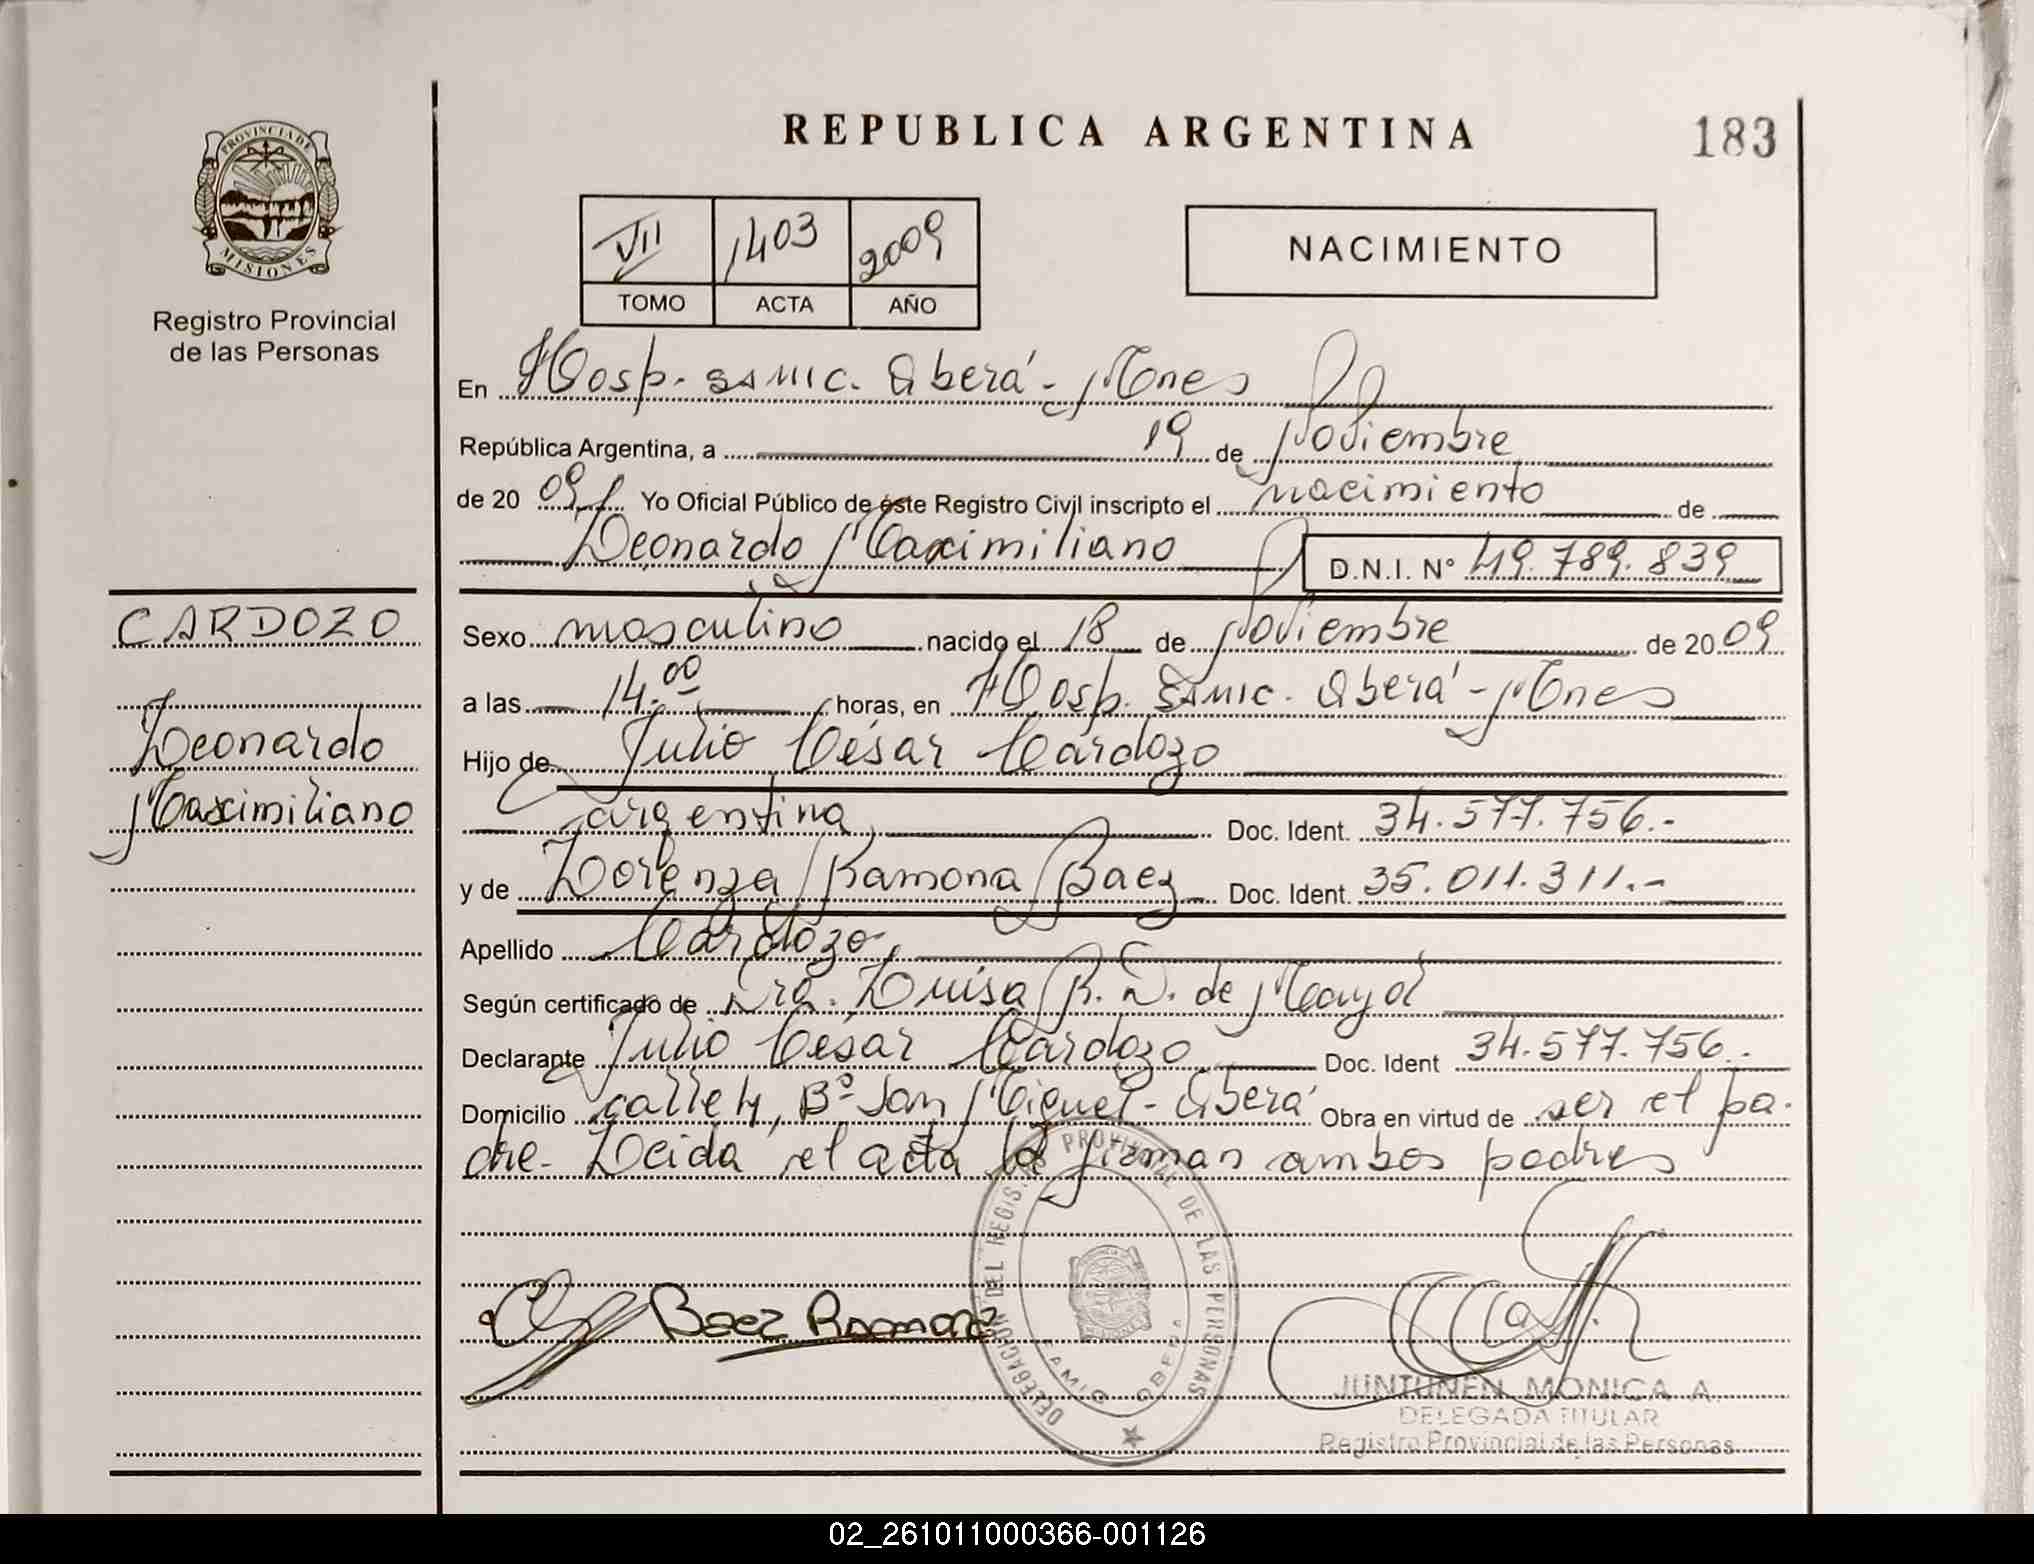 REPUBLICA ARGENTINA
183
PROVINCIA DE
MISIONES
Registro Provincial
de las Personas
VII 1403 2009
TOMO ACTA AÑO
NACIMIENTO
En Hosp. SAMIC. Oberá - Mnes
República Argentina, a 19 de Noviembre
de 20 09 Yo Oficial Público de éste Registro Civil inscripto el nacimiento de
Leonardo Maximiliano D.N.I. N° 49.789.839
CARDOZO
Leonardo
Maximiliano
Sexo masculino nacido el 18 de Noviembre de 20 09
a las 14.00 horas, en Hosp. SAMIC. Oberá - Mnes
Hijo de Julio César Cardozo
argentina Doc. Ident. 34.577.756.-
y de Lorenza Ramona Baez Doc. Ident. 35.011.311.-
Apellido Cardozo
Según certificado de Dra. Luisa R. D. de Mayol
Declarante Julio César Cardozo Doc. Ident 34.577.756.-
Domicilio calle 4, B° San Miguel - Oberá Obra en virtud de ser el pa-
dre. Leida el acta la firman ambos padres
Baez Ramona
DELEGACIÓN DEL REGIS. PROVINCIAL DE LAS PERSONAS
OBERA
JUNTUNEN MONICA A.
DELEGADA TITULAR
Registro Provincial de las Personas
02_261011000366-001126